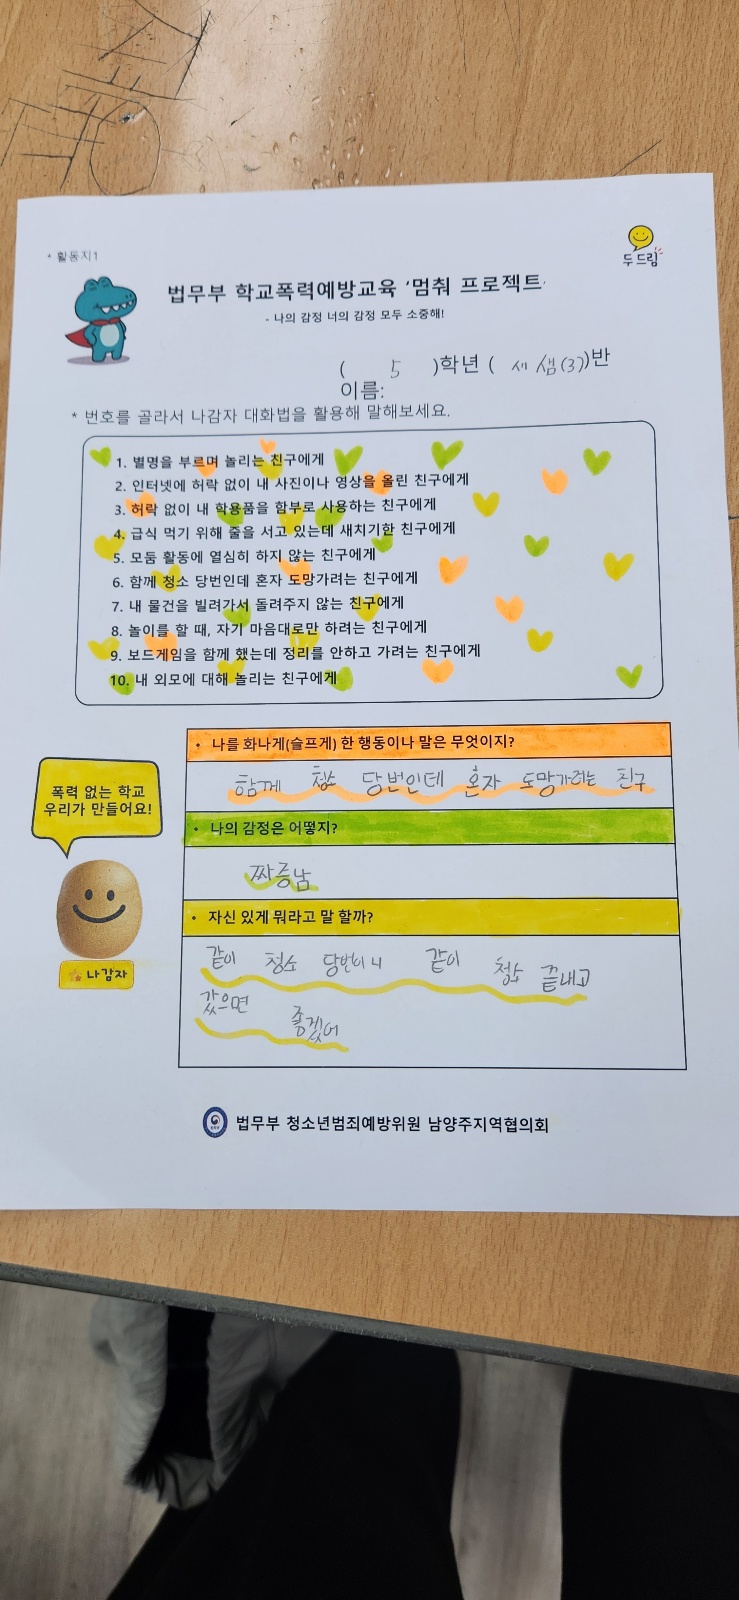 * 활동지1
두드림
법무부 학교폭력예방교육 '멈춰 프로젝트'
- 나의 감정 너의 감정 모두 소중해!
( 5 )학년 ( 세샘(3))반
이름:
* 번호를 골라서 나감자 대화법을 활용해 말해보세요.
1. 별명을 부르며 놀리는 친구에게
2. 인터넷에 허락 없이 내 사진이나 영상을 올린 친구에게
3. 허락 없이 내 학용품을 함부로 사용하는 친구에게
4. 급식 먹기 위해 줄을 서고 있는데 새치기한 친구에게
5. 모둠 활동에 열심히 하지 않는 친구에게
6. 함께 청소 당번인데 혼자 도망가려는 친구에게
7. 내 물건을 빌려가서 돌려주지 않는 친구에게
8. 놀이를 할 때, 자기 마음대로만 하려는 친구에게
9. 보드게임을 함께 했는데 정리를 안하고 가려는 친구에게
10. 내 외모에 대해 놀리는 친구에게
• 나를 화나게(슬프게) 한 행동이나 말은 무엇이지?
함께 청소 당번인데 혼자 도망가려는 친구
• 나의 감정은 어떻지?
짜증남
• 자신 있게 뭐라고 말 할까?
같이 청소 당번이니 같이 청소 끝내고
갔으면 좋겠어
폭력 없는 학교
우리가 만들어요!
나감자
법무부 청소년범죄예방위원 남양주지역협의회